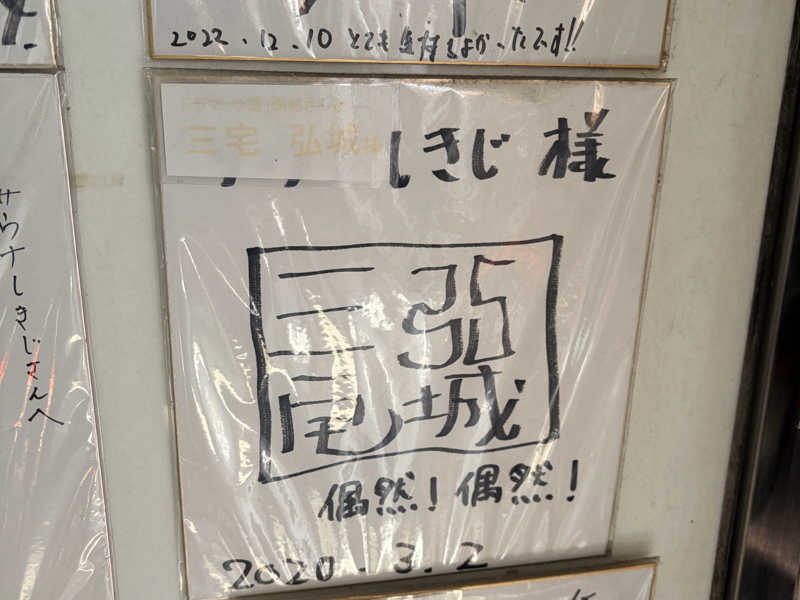 2022.12.10 とても気持ちよかったです!!
三宅 弘城様
しきじ 様
三宅
弘城
偶然! 偶然!
2020.3.2
サウナしきじさんへ